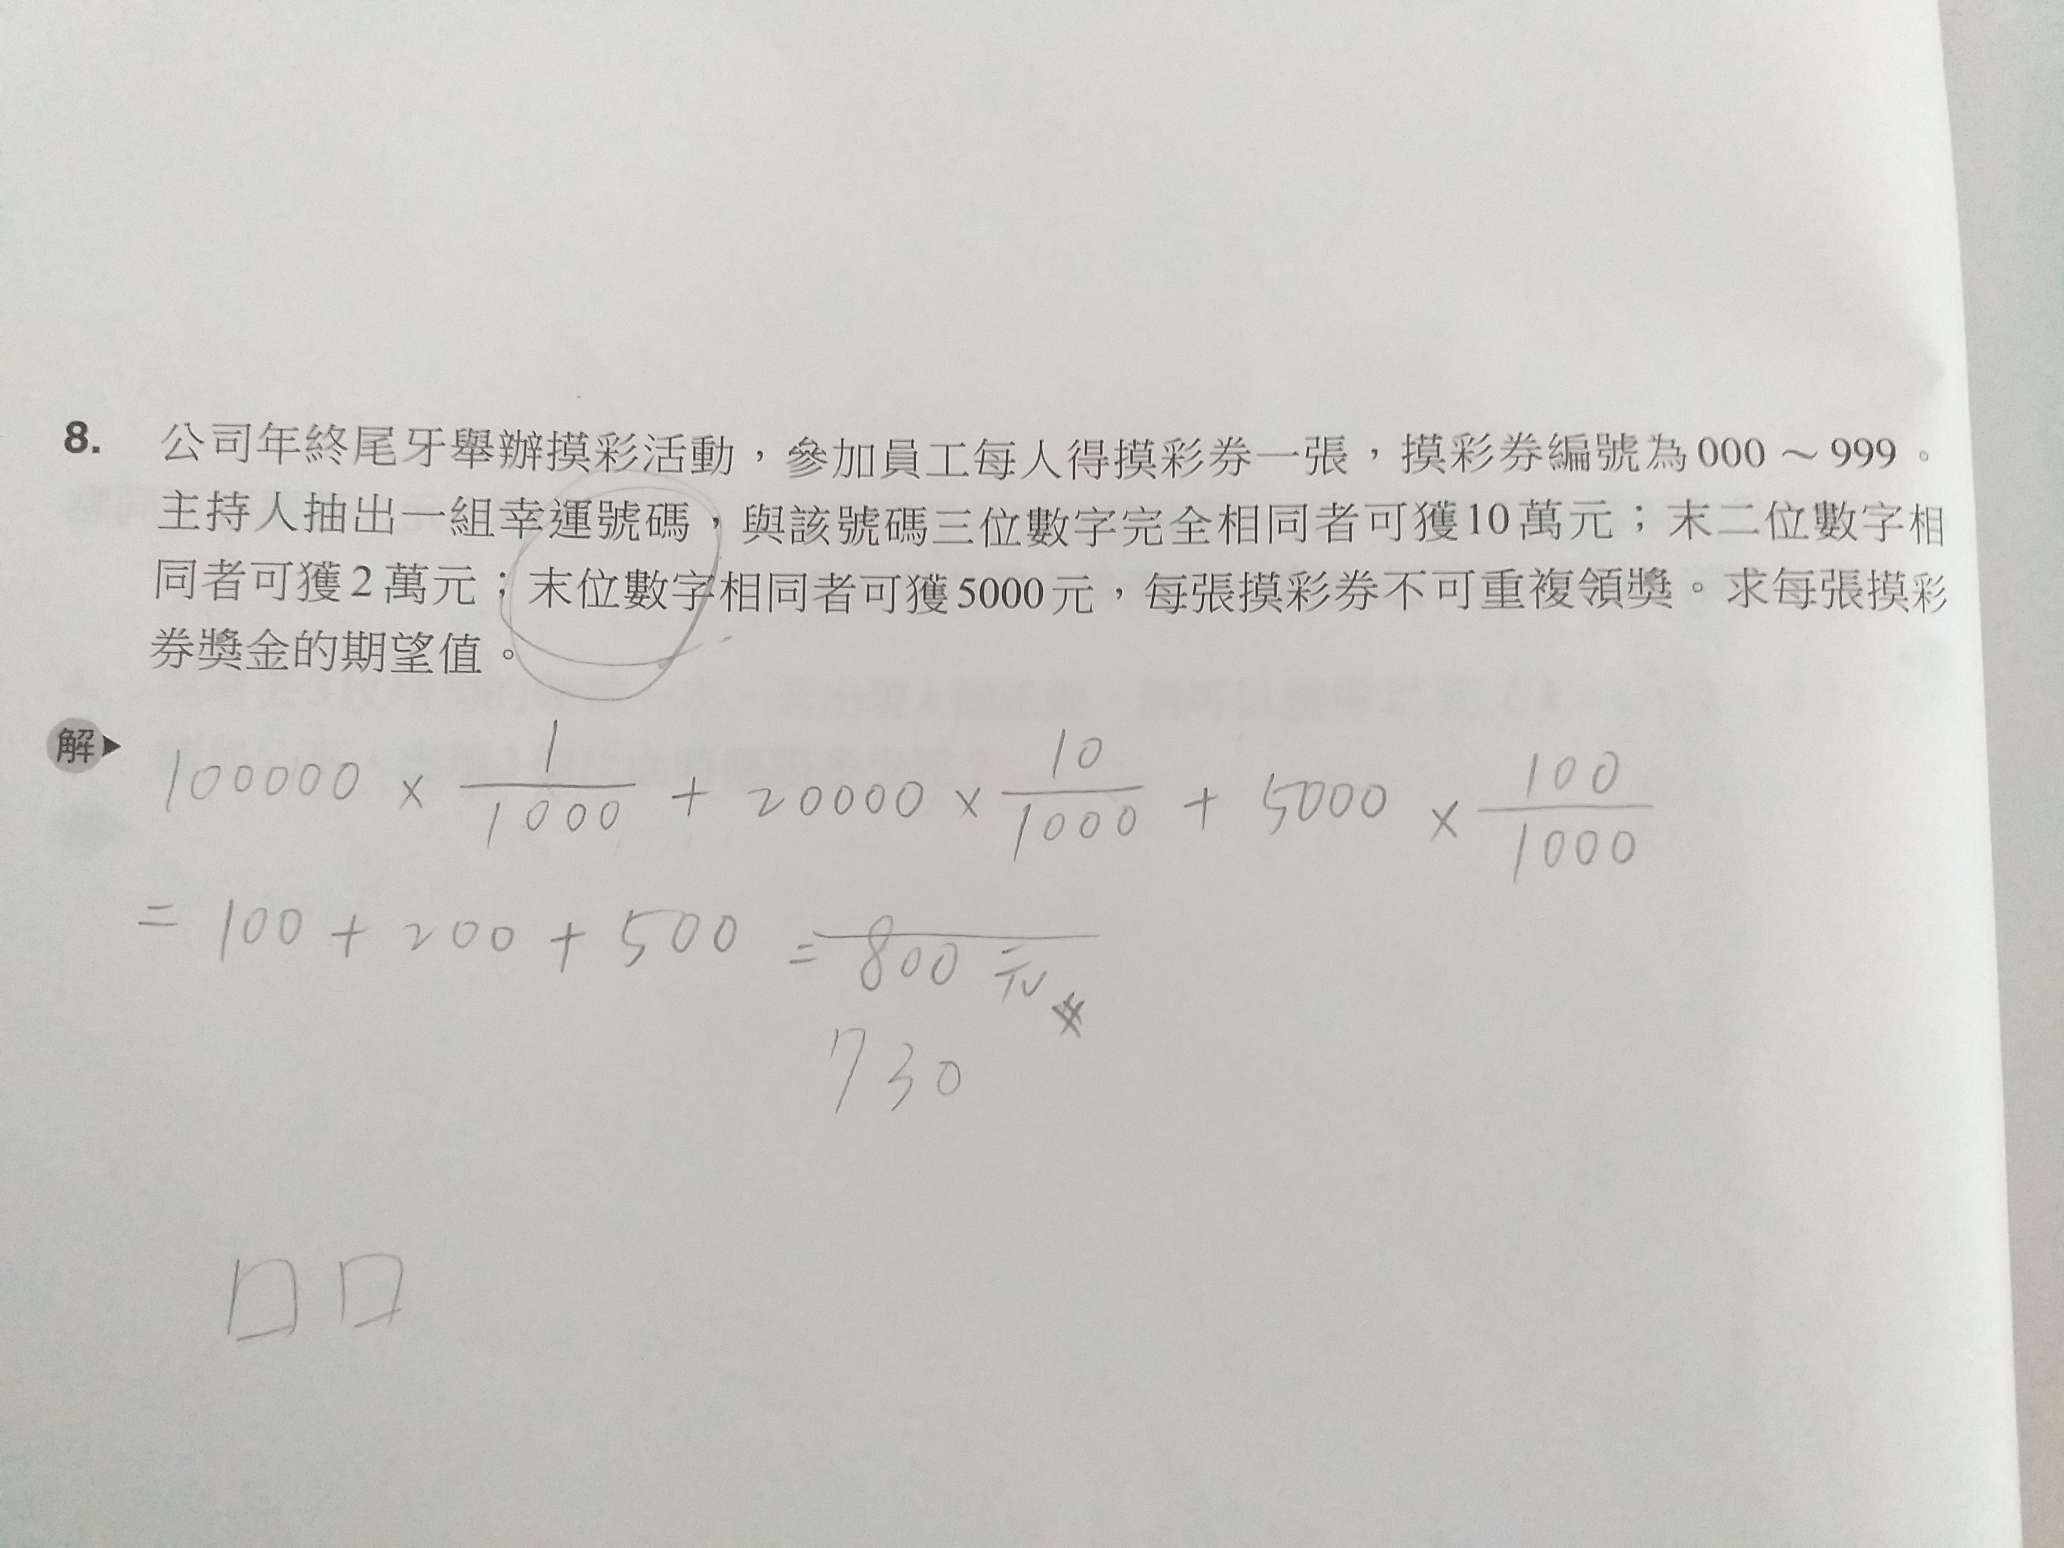 8. 公司年終尾牙舉辦摸彩活動，參加員工每人得摸彩券一張，摸彩券編號為000～999。
主持人抽出一組幸運號碼，與該號碼三位數字完全相同者可獲10萬元；末二位數字相
同者可獲2萬元；末位數字相同者可獲5000元，每張摸彩券不可重複領獎。求每張摸彩
券獎金的期望值。
解▶ 100000 × 1/1000 + 20000 × 10/1000 + 5000 × 100/1000
= 100 + 200 + 500 = 800 元 #
730
口口